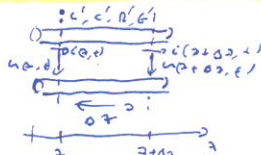 L', C', R', G'
i(z,t) i(z+Δz,t)
u(z,t) u(z+Δz,t)
Δz i
z z+Δz z